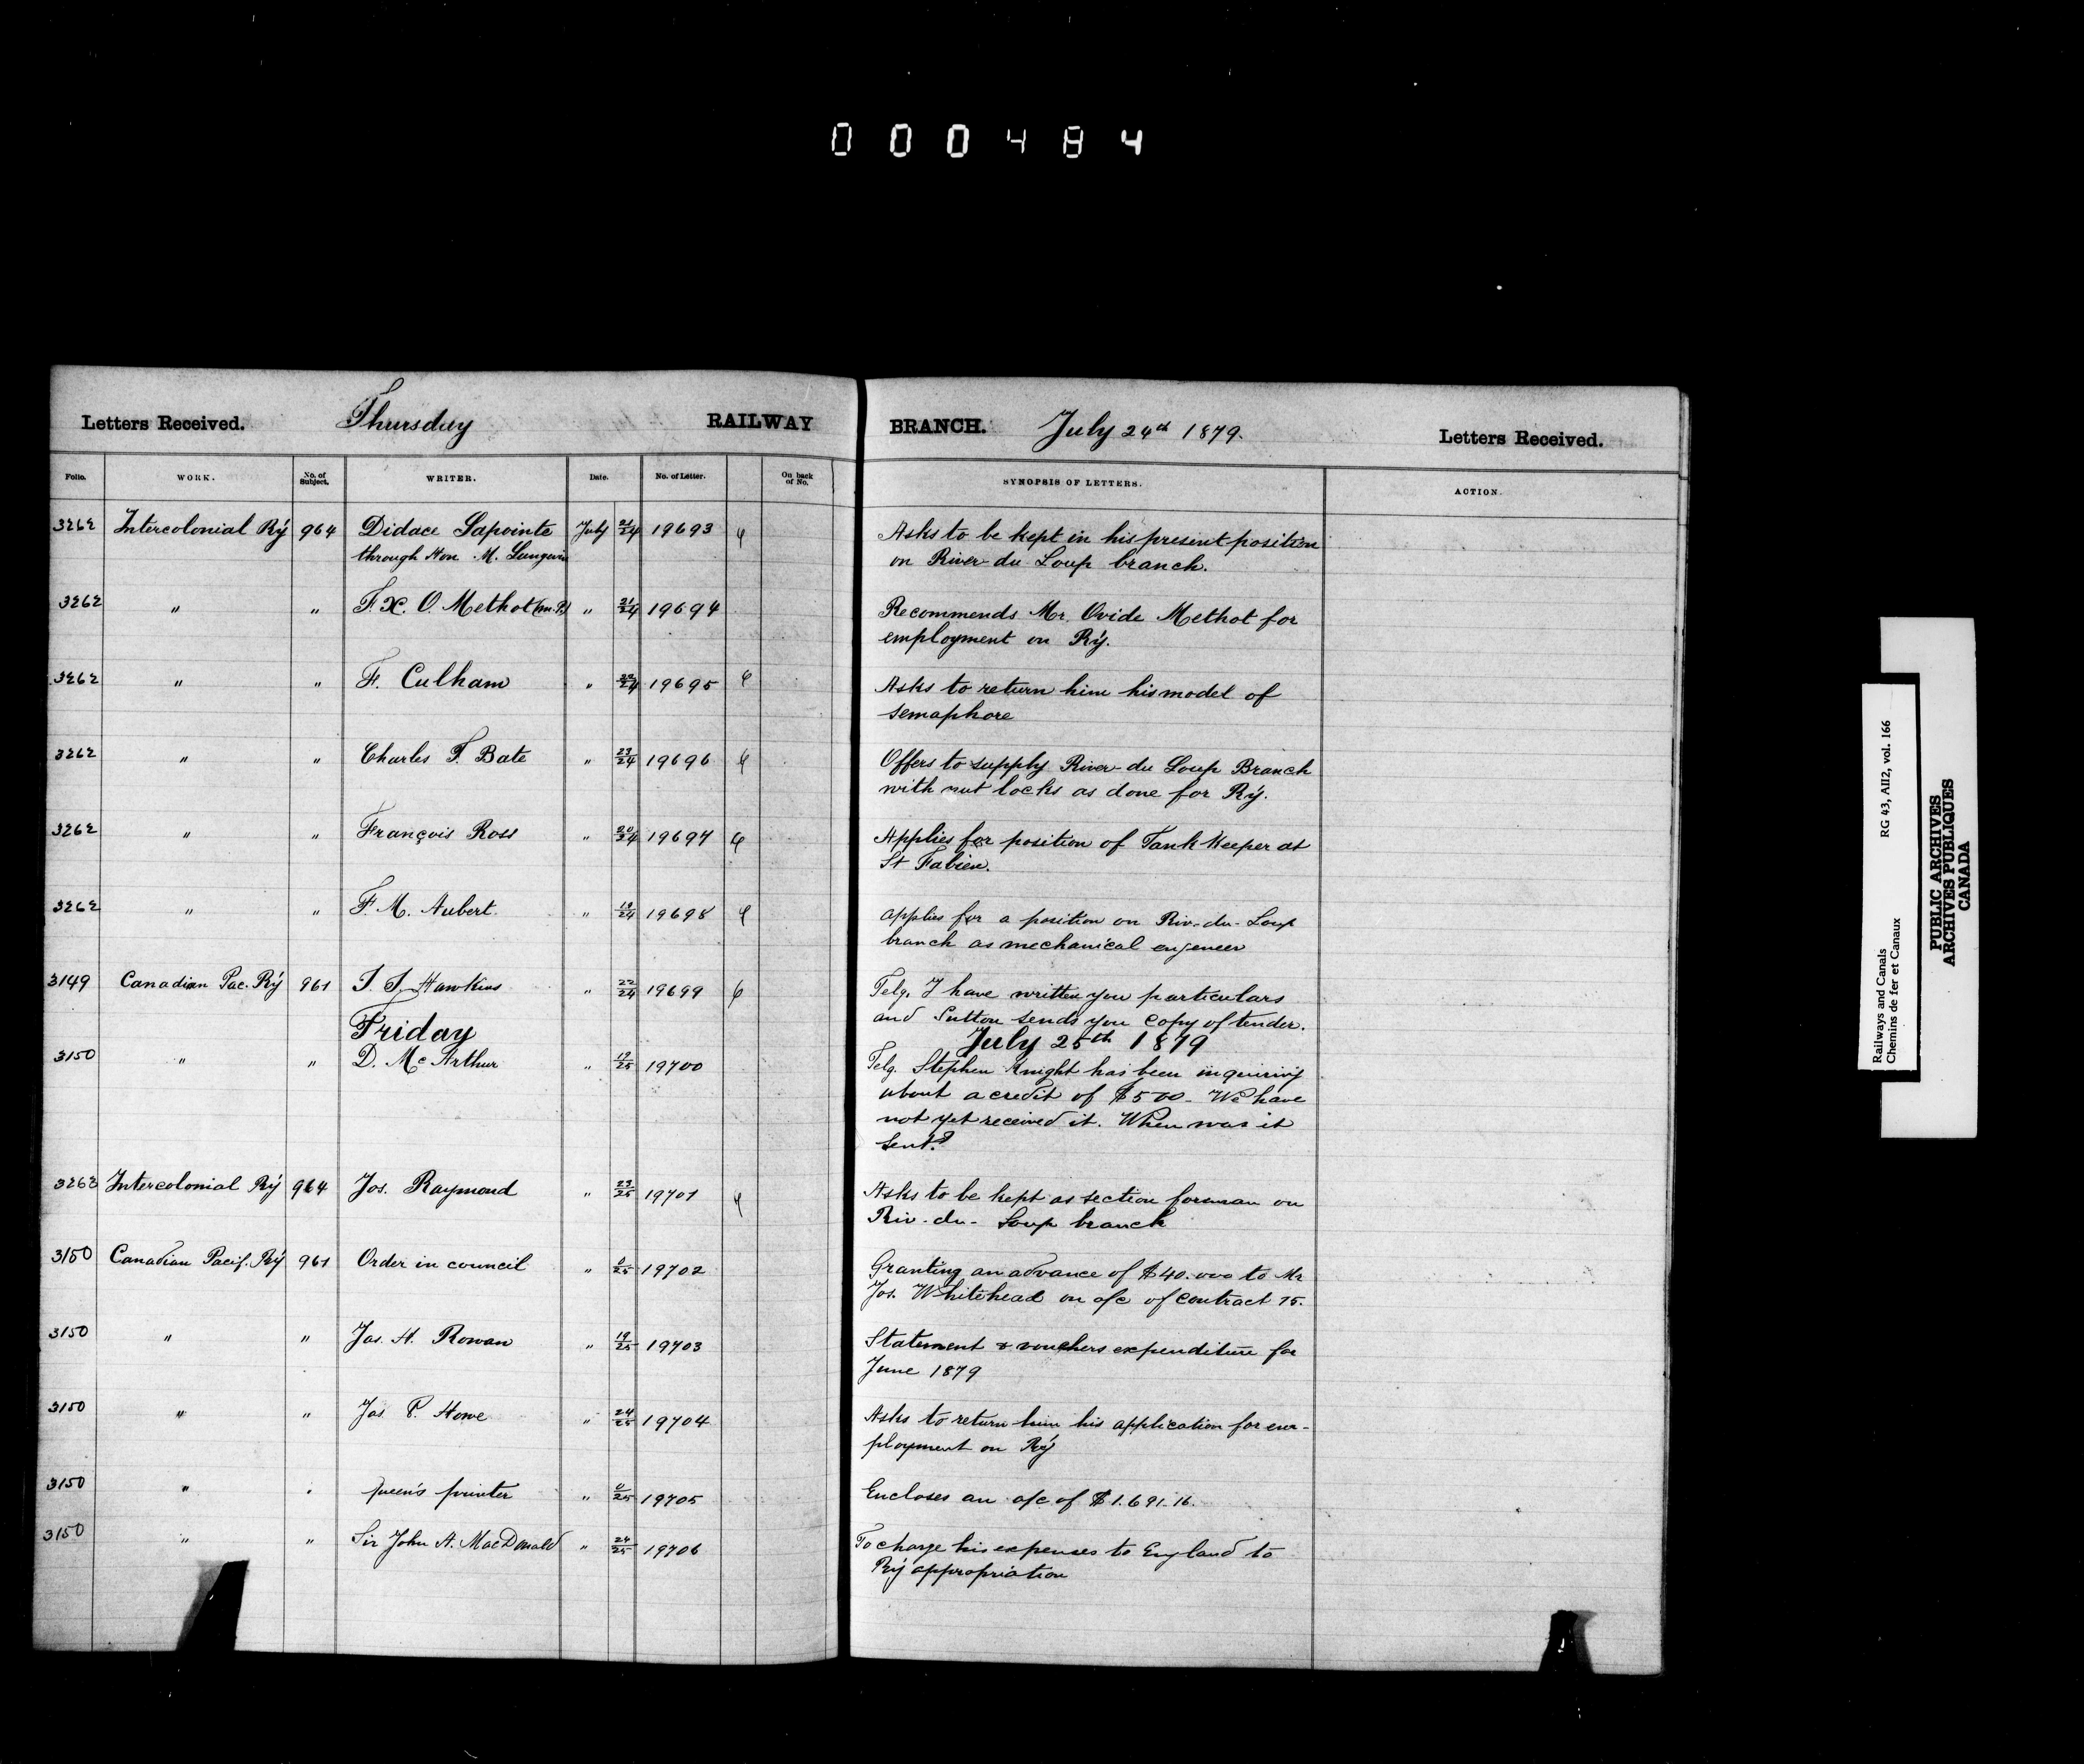 000484
Letters Received. Thursday RAILWAY BRANCH. July 24th 1879. Letters Received.
Folio. WORK. No. of Subject. WRITER. Date. No. of Letter. On back of No. SYNOPSIS OF LETTERS. ACTION.
3262 Intercolonial Ry 964 Didace Lapointe July 21/24 19693 Asks to be kept in his present position
through Hon. M. Langevin on River-du Loup branch.
3262 " " F. X. O. Methot (M.P.) " 21/24 19694 Recommends Mr. Ovide Methot for
employment on Ry.
3262 " " F. Culham " 22/24 19695 Asks to return him his model of
semaphore
3262 " " Charles T. Bate " 23/24 19696 Offers to supply River-du Loup Branch
with nut locks as done for Ry.
3262 " " François Ross " 20/24 19697 Applies for position of Tank Keeper at
St Fabien.
3262 " " F. M. Aubert. " 19/24 19698 applies for a position on Riv.-du-Loup
branch as mechanical engeneer
3149 Canadian Pac. Ry 961 Hawkins " 22/24 19699 Telg. I have written you particulars
and Sutton sends you copy of tender.
Friday July 25th 1879
3150 " " D. McArthur " 19/25 19700 Telg. Stephen Knight has been inquiring
about a credit of $500- We have
not yet received it. When was it
sent?
3262 Intercolonial Ry 964 Jos. Raymond " 23/25 19701 Asks to be kept as section forman on
Riv-du-Loup branch
3150 Canadian Pacif. Ry 961 Order in council " 0/25 19702 Granting an advance of $40.000 to Mr
Jos. Whitehead on a/c of contract 15.
3150 " " Jas. H. Rowan " 19/25 19703 Statement & vouchers expenditure for
June 1879
3150 " " Jas. P. Howe " 24/25 19704 Asks to return him his application for em-
ployment on Ry
3150 " " Queen's printer " 0/25 19705 Encloses an a/c of $1.691.16.
3150 " " Sir John A. MacDonald " 24/25 19706 To charge his expenses to England to
Ry appropriation
Railways and Canals RG 43, AII2, vol. 166
Chemins de fer et Canaux
PUBLIC ARCHIVES
ARCHIVES PUBLIQUES
CANADA